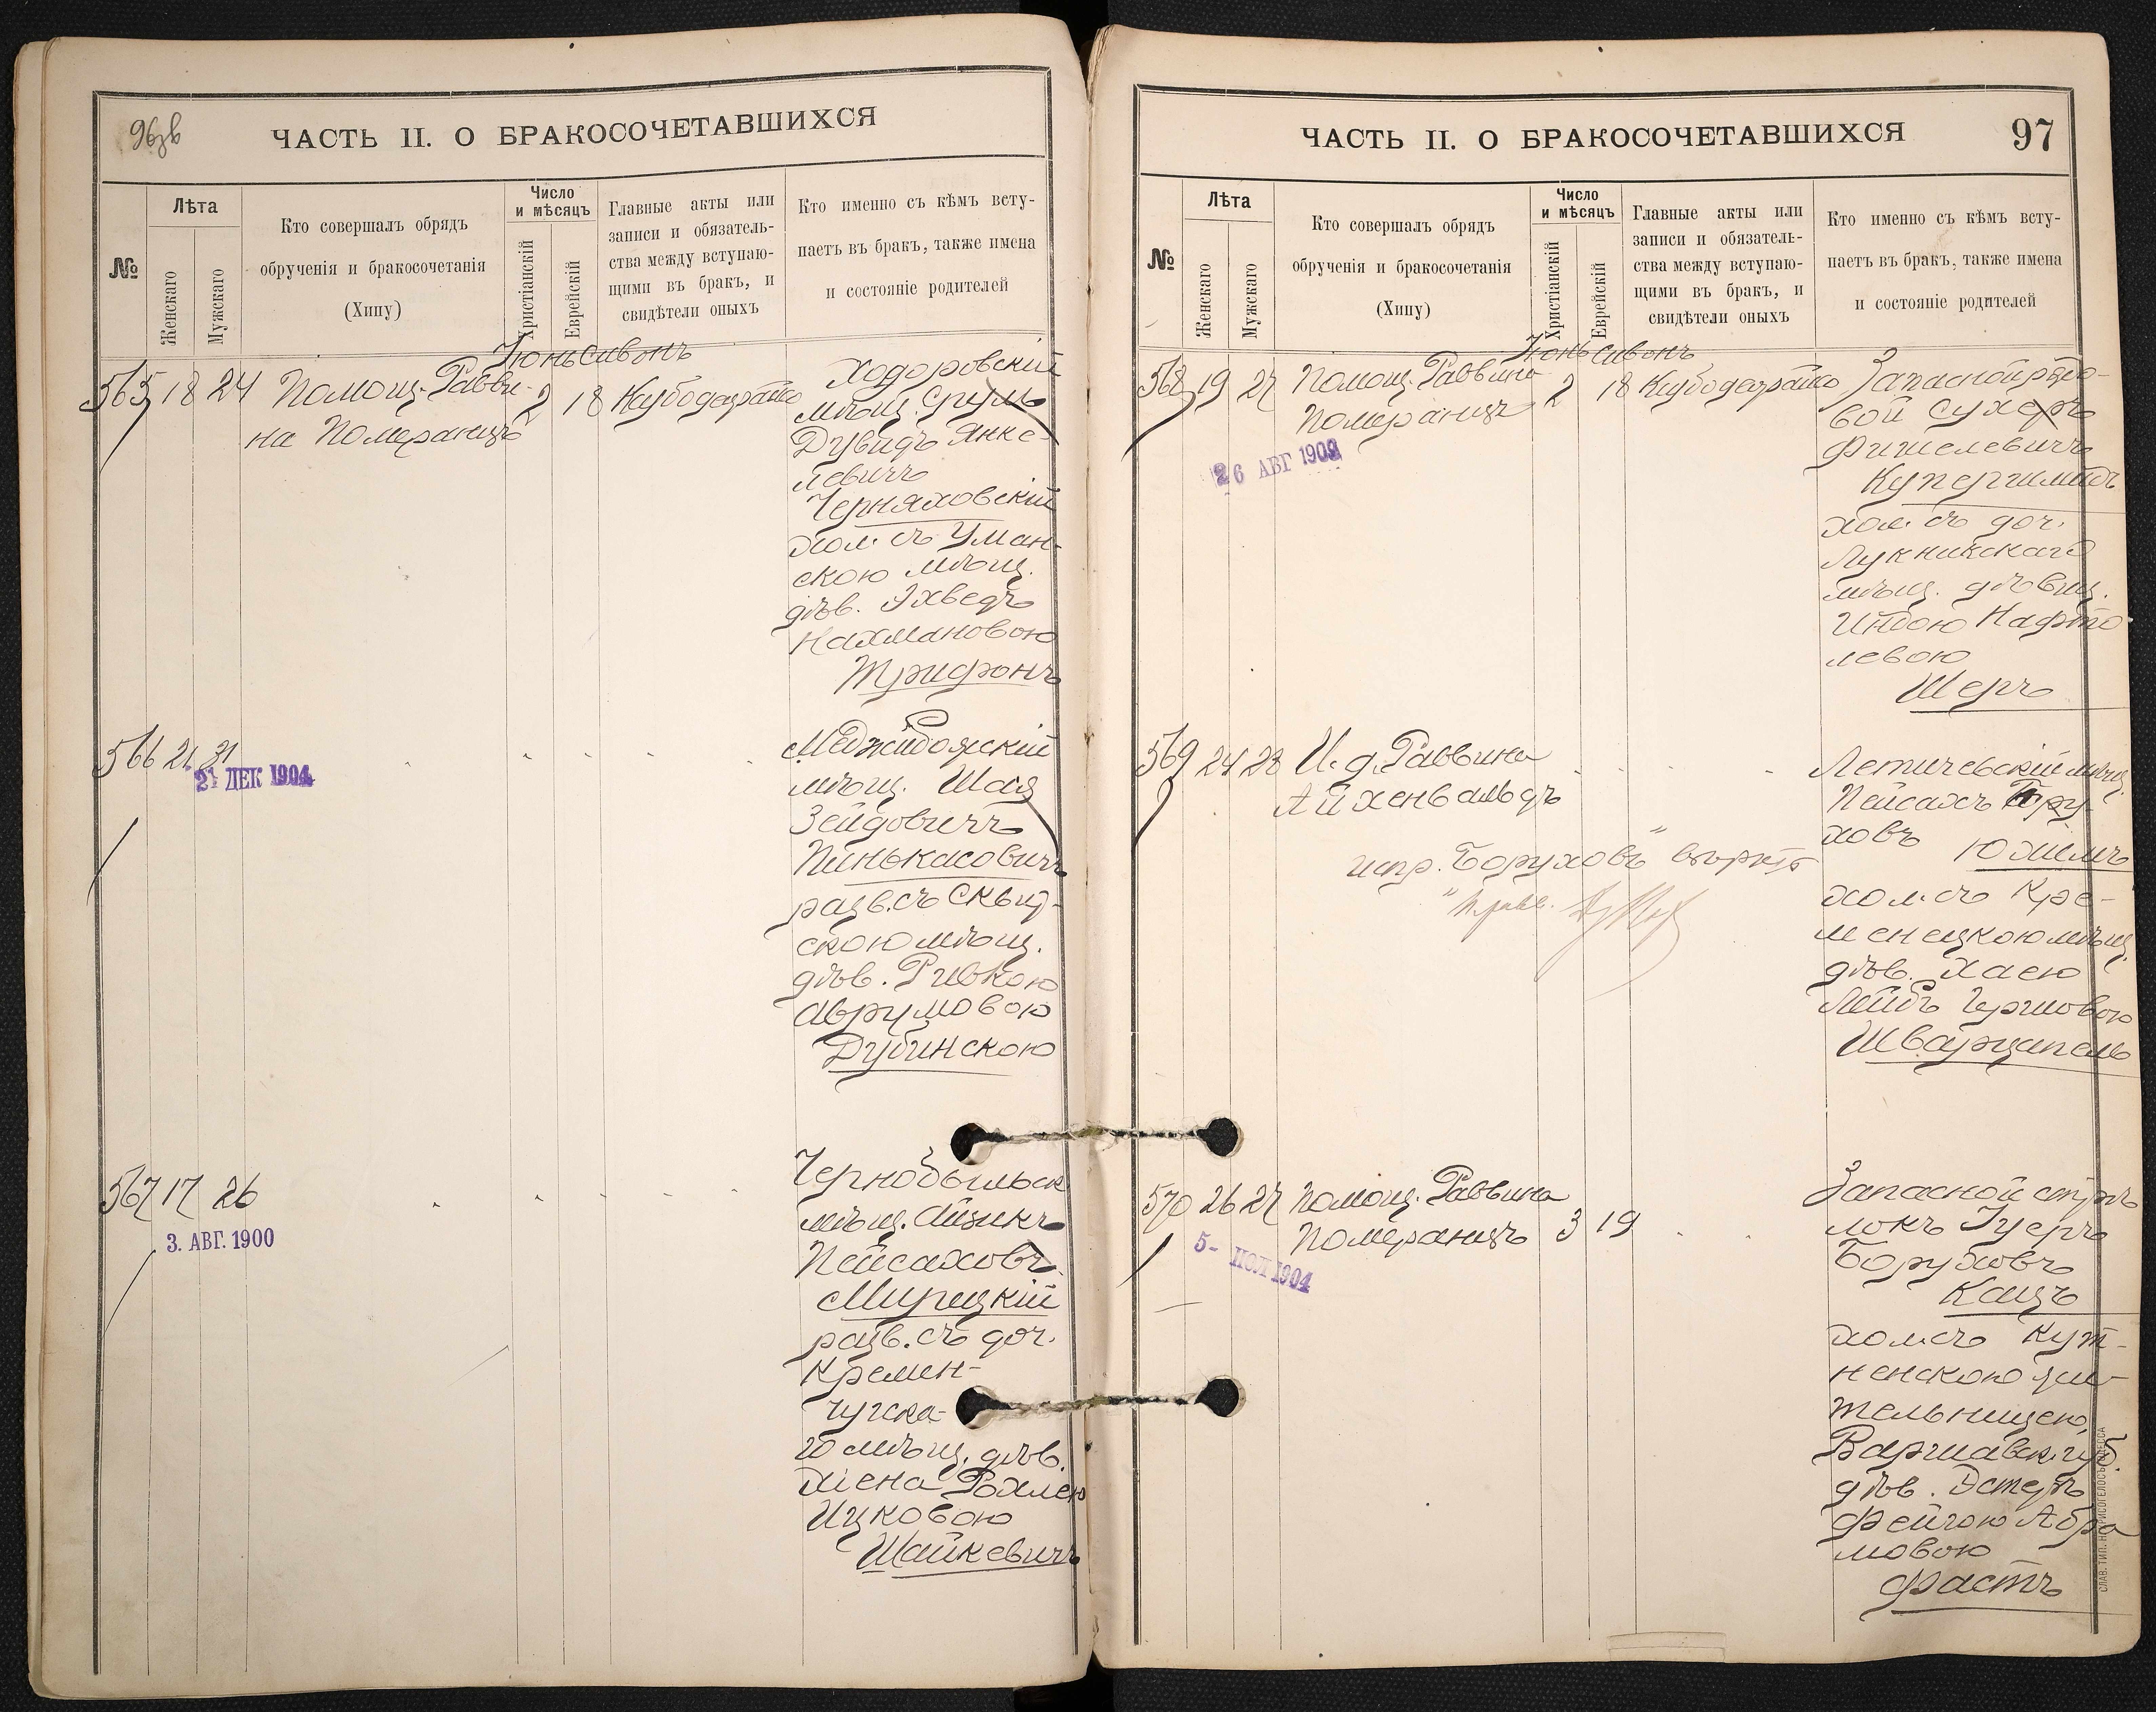 96об
ЧАСТЬ II. О БРАКОСОЧЕТАВШИХСЯ
№
Лѣта
Женскаго
Мужскаго
Кто совершалъ обрядъ
обрученія и бракосочетанія
(Хипу)
Число
и мѣсяцъ
Христіанскій
Еврейскій
Главные акты или
записи и обязатель-
ства между вступаю-
щими въ бракъ, и
свидѣтели оныхъ
Кто именно съ кѣмъ всту-
паетъ въ бракъ, также имена
и состояніе родителей
Іюнь Сивонъ
565 18 24 Помощ. Равви-
на Померанцъ
2 18
Ходоровскій
мѣщ. Сруль
Дувидъ Янке-
левичъ
Черняховскій
хол. съ Уман-
скою мѣщ.
дѣв.
Нахмановою
Трифонъ
566 21 31
21 ДЕК 1904
Меджибожскій
мѣщ. Шая
Зейдовичъ
Пинькасовичъ
разв. съ Сквир-
скою мѣщ.
дѣв. Ривкою
Аврумовою
Дубинскою
567 17 26
3. АВГ. 1900
Чернобыльск
мѣщ. Айзикъ
Пейсаховъ
Мирецкій
разв. съ доч.
Кремен-
чугска-
го мѣщ. дѣв.
Рохлею
Ицковою
Шайкевичъ
ЧАСТЬ II. О БРАКОСОЧЕТАВШИХСЯ
97
№
Лѣта
Женскаго
Мужскаго
Кто совершалъ обрядъ
обрученія и бракосочетанія
(Хипу)
Число
и мѣсяцъ
Христіанскій
Еврейскій
Главные акты или
записи и обязатель-
ства между вступаю-
щими въ бракъ, и
свидѣтели оныхъ
Кто именно съ кѣмъ всту-
паетъ въ бракъ, также имена
и состояніе родителей
Іюнь Сивонъ
568 19 27 Помощ. Раввина
Померанцъ
2 18
26 АВГ 1902
Запасной рядо-
вой Сухеръ
Фишелевичъ
Купершмидъ
хол. съ доч.
Лукникскаго
мѣщ. дѣвиц.
Нафто-
левою
Шеръ
569 24 28 И. д. Раввина
Айхенвальдъ
испр. "Боруховъ" вѣрно
Летичевскій мѣщ.
Пейсахъ Бору-
ховъ
хол. съ Кре-
менецкою мѣщ.
дѣв. Хаею
Лейбъ Гершовою
Шварцапель
570 26 27 Помощ. Раввина
Померанцъ
3 19
5- НОЯ 1904
Запасной стрѣ-
локъ Іуеръ
Боруховъ
Кацъ
хол. съ Кут-
ненскою жи-
тельницею
Варшавск. губ.
дѣв. Эстеръ
Фейгою Абра
мовою
Фастъ